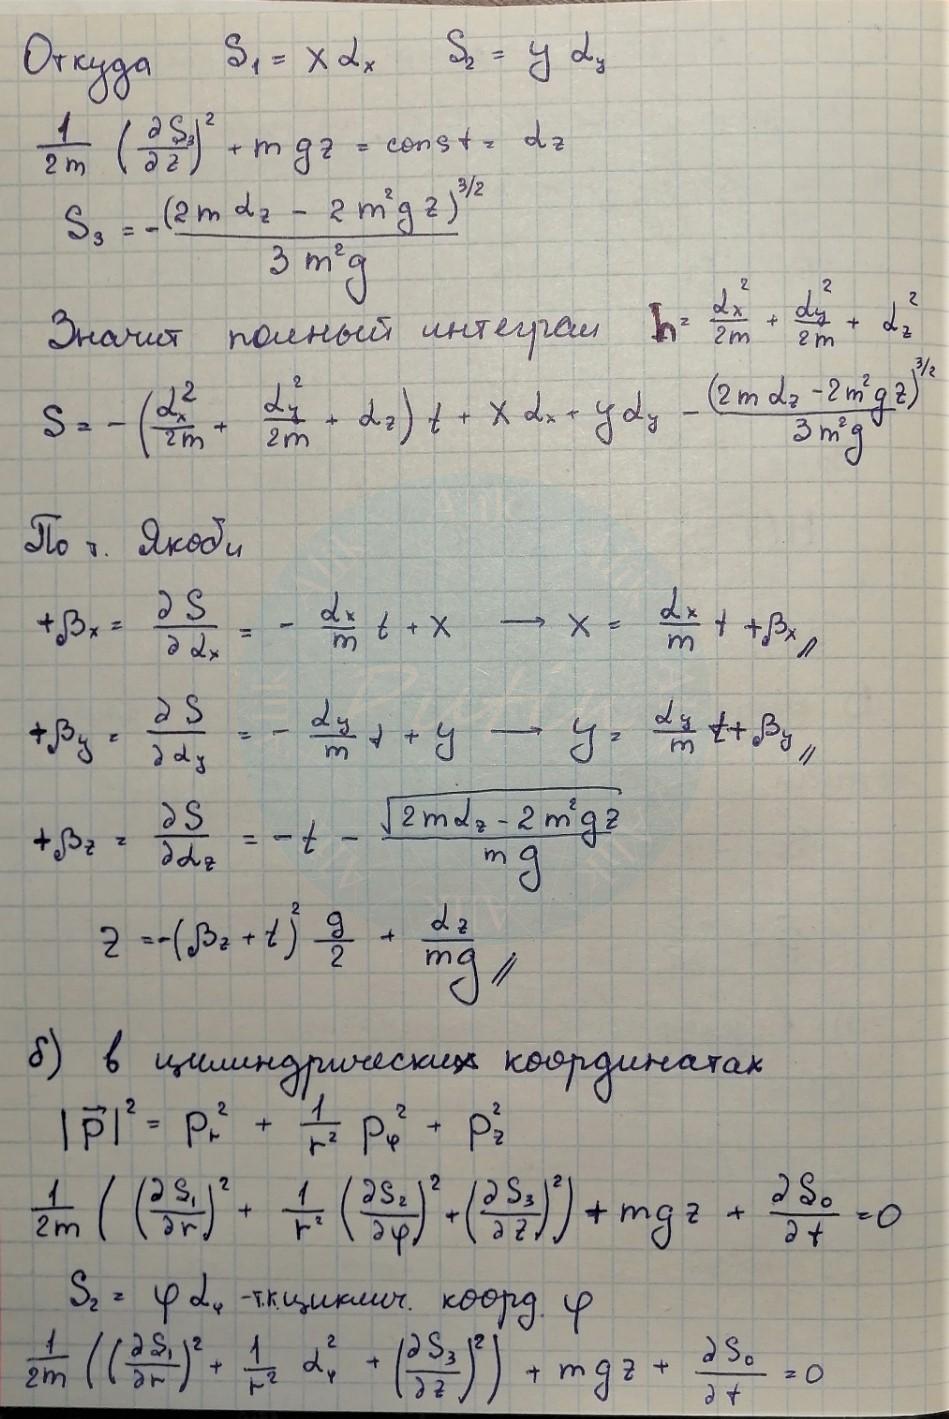 Откуда S₁ = x α_x S₂ = y α_y
1/2m (∂S₃/∂z)² + mgz = const = α_z
S₃ = -(2mα_z - 2m²gz)^3/2 / 3m²g
Значит полный интеграл h = α_x²/2m + α_y²/2m + α_z²
S = -(α_x²/2m + α_y²/2m + α_z) t + x α_x + y α_y - (2mα_z - 2m²gz)^3/2 / 3m²g
По т. Якоби
+β_x = ∂S/∂α_x = - α_x/m t + x → x = α_x/m t + β_x //
+β_y = ∂S/∂α_y = - α_y/m t + y → y = α_y/m t + β_y //
+β_z = ∂S/∂α_z = - t - √(2mα_z - 2m²gz) / mg
z = -(β_z + t)² g/2 + α_z/mg //
б) в цилиндрических координатах
|p⃗|² = p_r² + 1/r² p_φ² + p_z²
1/2m ((∂S₁/∂r)² + 1/r² (∂S₂/∂φ)² + (∂S₃/∂z)²) + mgz + ∂S₀/∂t = 0
S₂ = φ α_φ - т.к. циклич. коорд. φ
1/2m ((∂S₁/∂r)² + 1/r² α_φ² + (∂S₃/∂z)²) + mgz + ∂S₀/∂t = 0